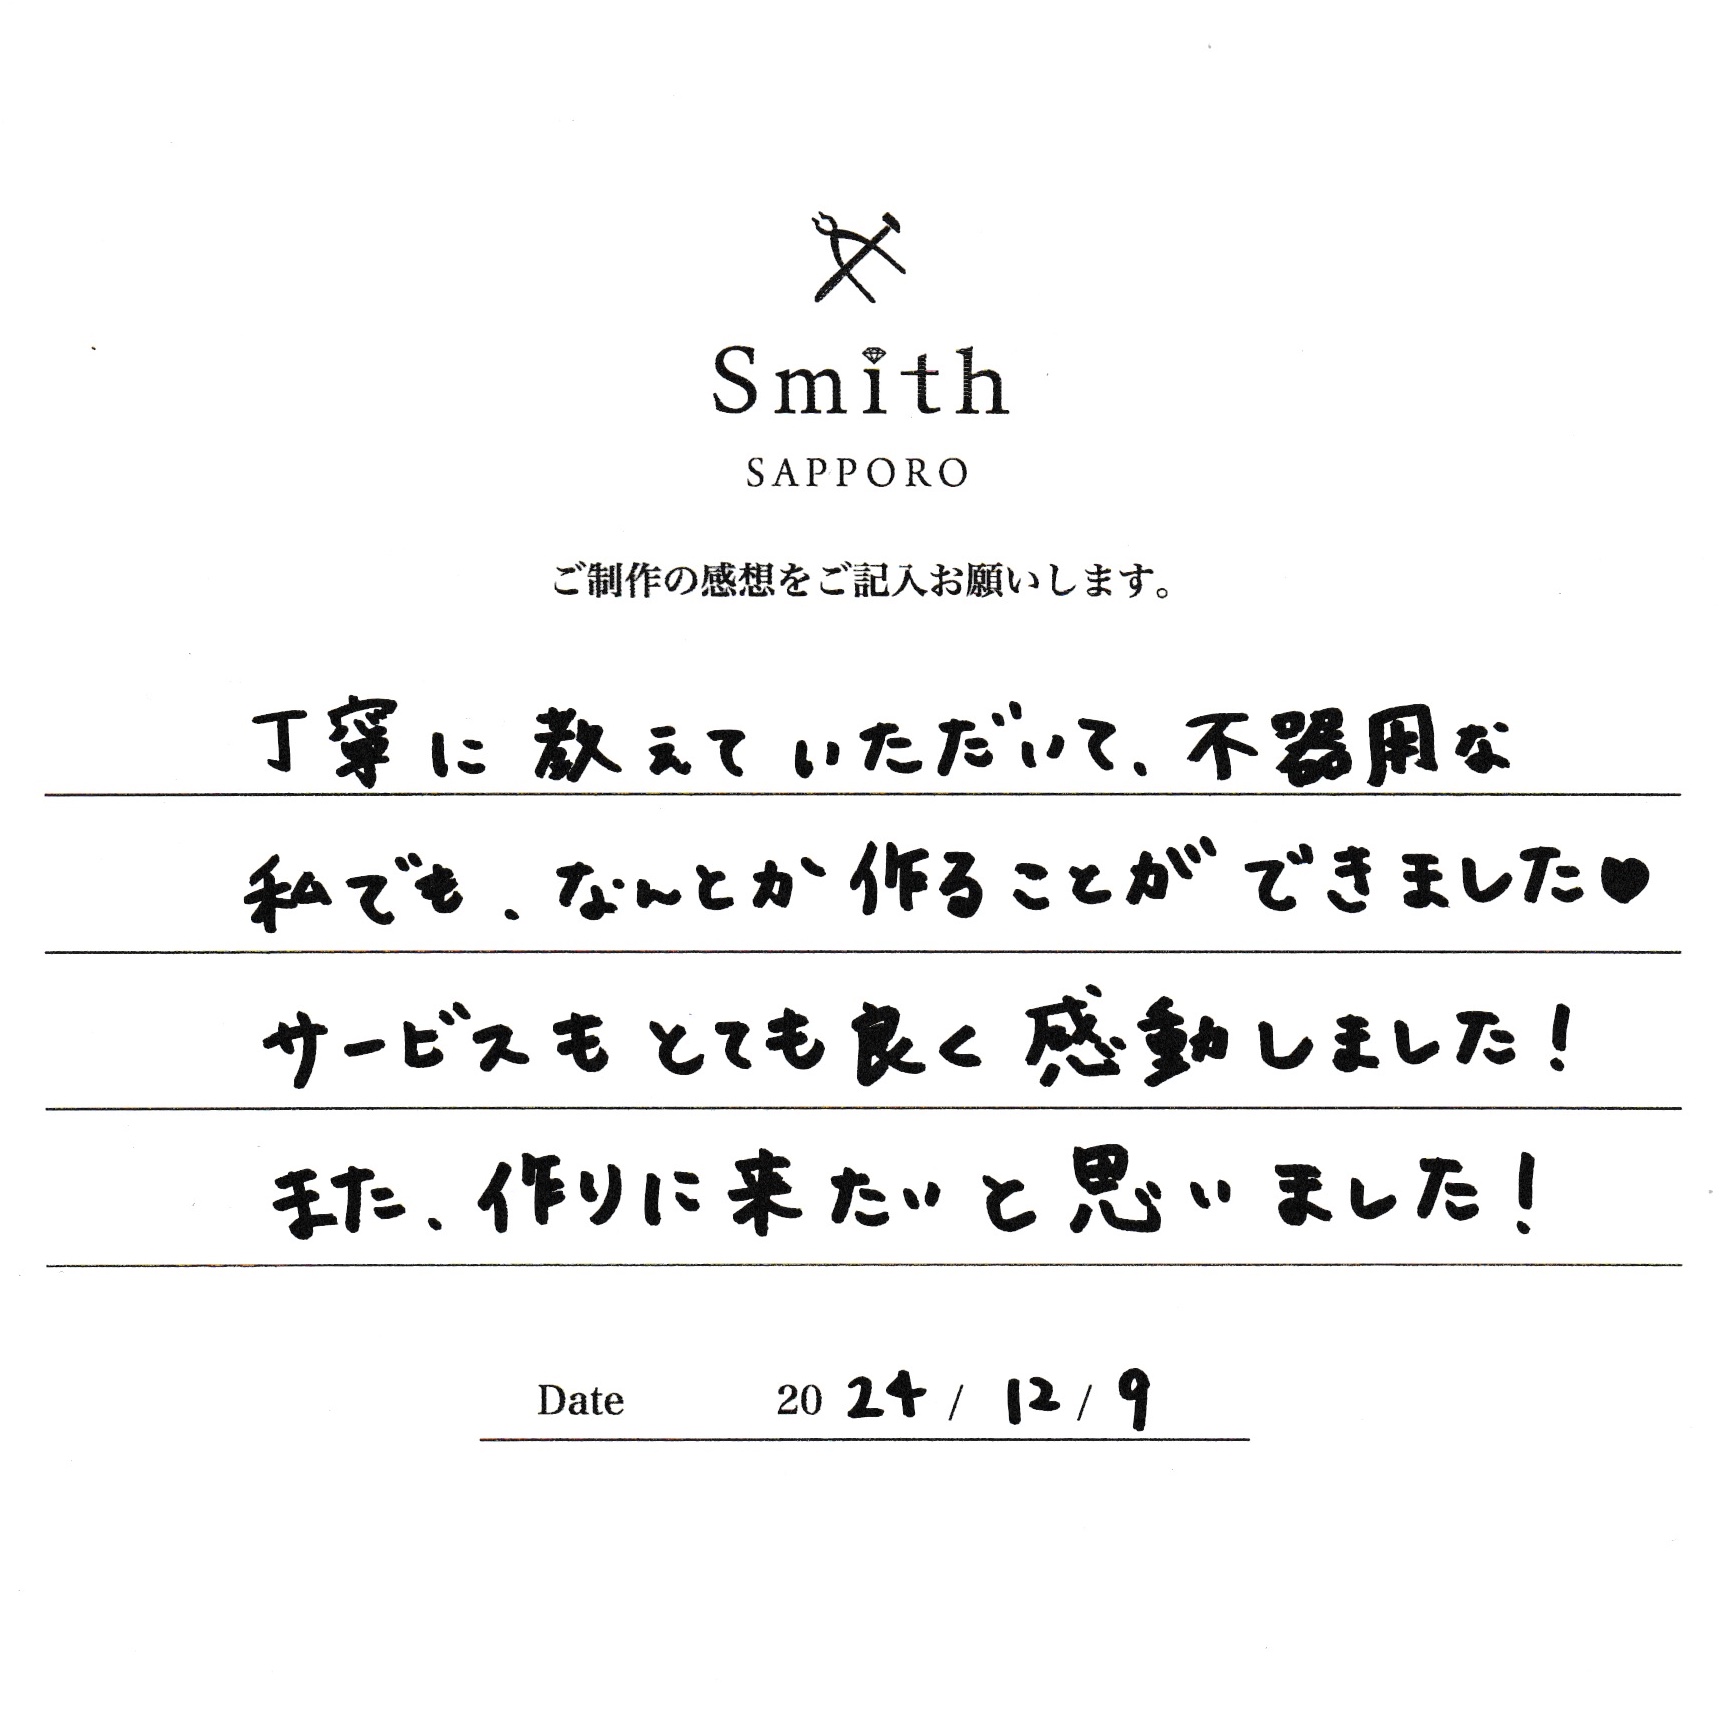 Smith
SAPPORO
ご制作の感想をご記入お願いします。
丁寧に教えていただいて、不器用な
私でも、なんとか作ることができました♥
サービスもとても良く感動しました!
また、作りに来たいと思いました!
Date 2024/12/9